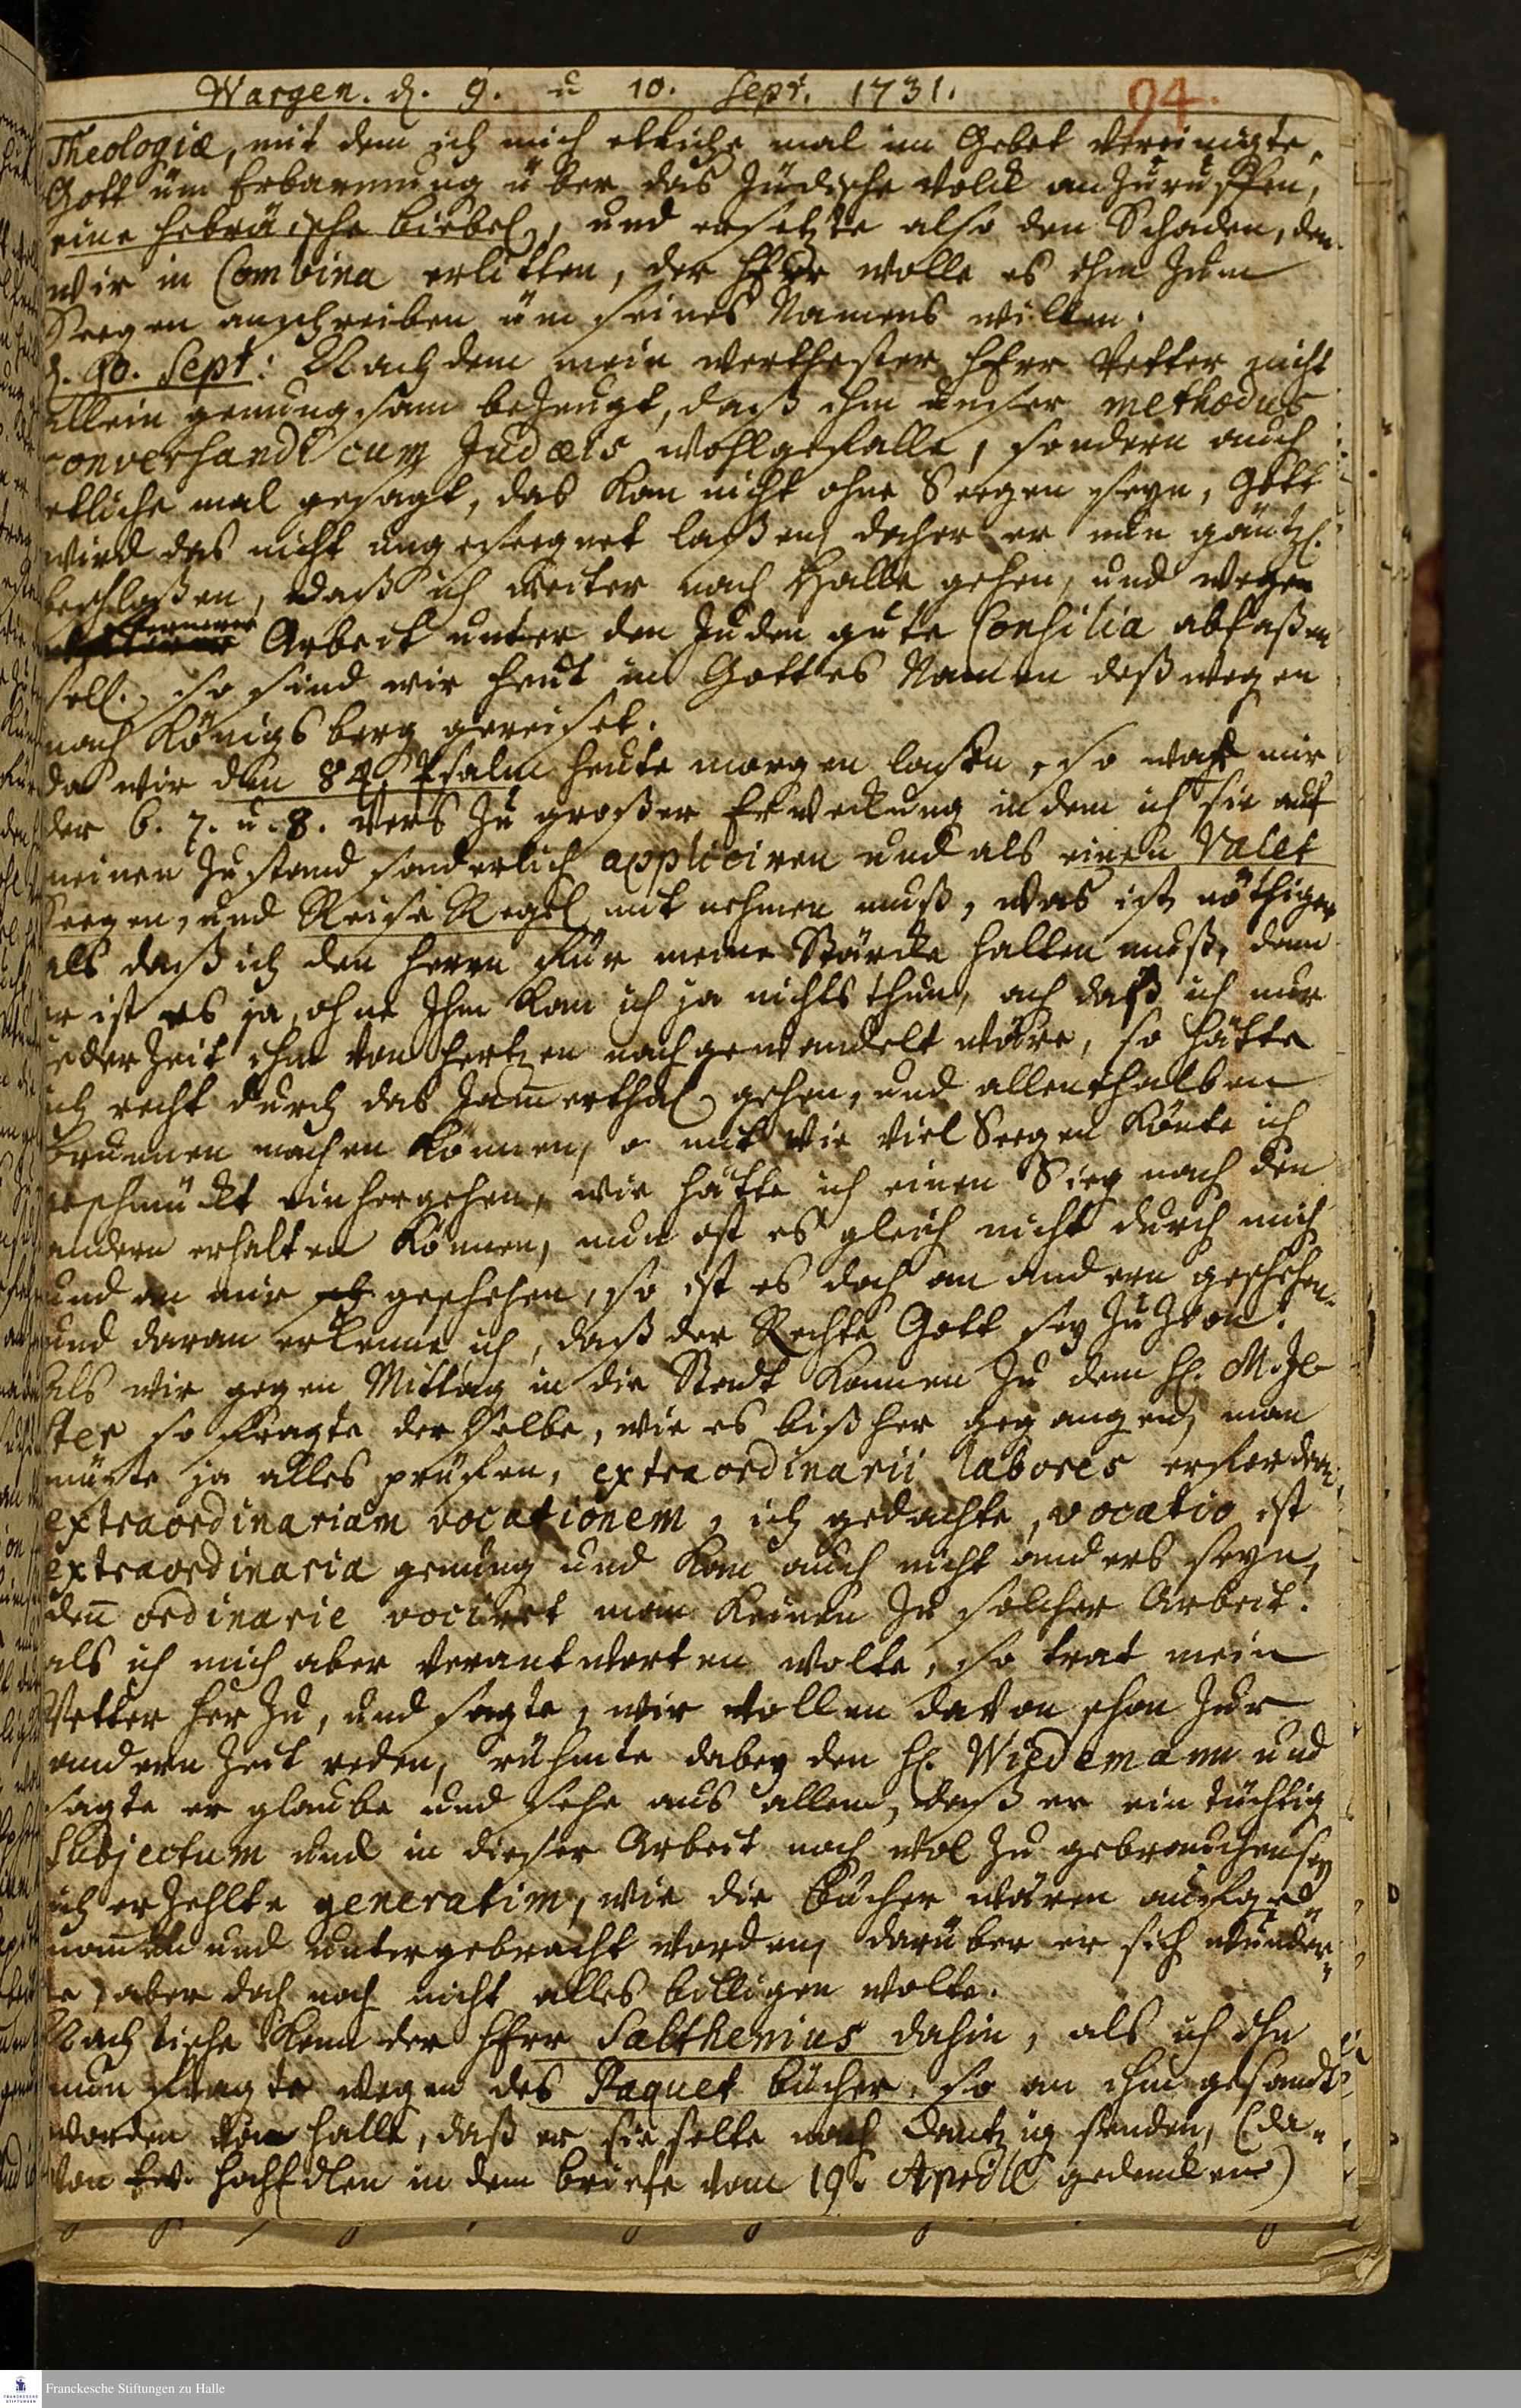 Wargen. d. 9. u 10. Sept. 1731.
94.
Theologiæ, mit dem ich mich etliche mal im Gebet vereinigte,
Gott üm Erbarmung über das Jüdische Volck anzuruffen,
eine hebräische Biebel, und ersetzte also den Schaden, den
wir in Combina erlitten, der HErr wolle es ihm zum
Seegen anschreiben üm seines Namens willen.
d. 10. Sept: Nachdem mein werthester HErr Vetter nicht
allein genungsam bezeugt, daß ihm unser methodus
converhandi cum Judæis wohlgefalle, sondern auch
etliche mal gesagt, das kan nicht ohne Seegen seyn, Gott
wird das nicht ungeseegnet laßen, daher er nun gäntzl.
beschloßen, daß ich weiter nach Halle gehen, und wegen
fernerer Arbeit unter den Juden gute Consilia abfaßen
soll. so sind wir heut in Gottes Namen deßwegen
nach Königsberg gereiset.
da wir den 84. Psalm heute morgen lasen, so war mir
der 6. 7. u. 8. Vers zu großer Erweckung indem ich sie auf
meinen Zustand sonderlich appliciren und als einen Valet
Seegen, und Reise Regel mit nehmen muß, was ist nöthiger
als daß ich den Herrn für meine Stärcke halten muß, denn
er ist es ja, ohne Ihm kan ich ja nichts thun, ach daß ich nur
jederzeit ihm von Hertzen nachgewandelt wäre, so hätte
ich recht durch das Jam̄erthal gehen, und allenthalben
Brunnen machen können, o mit wie viel Seegen könte ich
geschmückt einhergehen, wie hätte ich einen Sieg nach den
andern erhalten können, nun ist es gleich nicht durch mich
und an mir geschehen, so ist es doch an andern geschehen.
und daran erkenne ich, daß der Rechte Gott sey zu Zion.
Als wir gegen Mittag in die Stadt kamen zu dem H. M. Ze
ster so fragte derselbe, wie es bißher gegangen, man
müste ja alles prüfen, extraordinarii labores erfordern
extraordinariam vocationem, ich gedachte, vocatio ist
extraordinaria genung und kan auch nicht anders seyn,
deñ ordinarie vocirt man keinen zu solcher Arbeit.
als ich mich aber verantworten wolte, so trat mein
Vetter herzu, und sagte, wir wollen davon schon zur
andern Zeit reden, rühmte dabey den H. Wiedemann und
sagte er glaube und sehe aus allem, daß er ein tüchtig
Subjectum und in dieser Arbeit noch wol zu gebrauchen sey
ich erzehlte generatim, wie die Bücher wären aufge¬
nom̄en und untergebracht worden, darüber er sich wunder¬
te, aber doch noch nicht alles billigen wolte.
Nach Tische kam der HErr Salthenius dahin, als ich ihn
nun fragte wegen des Paquet Bücher, so an ihm gesandt
worden von Halle, daß er sie solte nach Dantzig senden, (da¬
von Ew. HochEdlen in dem Briefe vom 19. Aprill gedencken)
Franckesche Stiftungen zu Halle